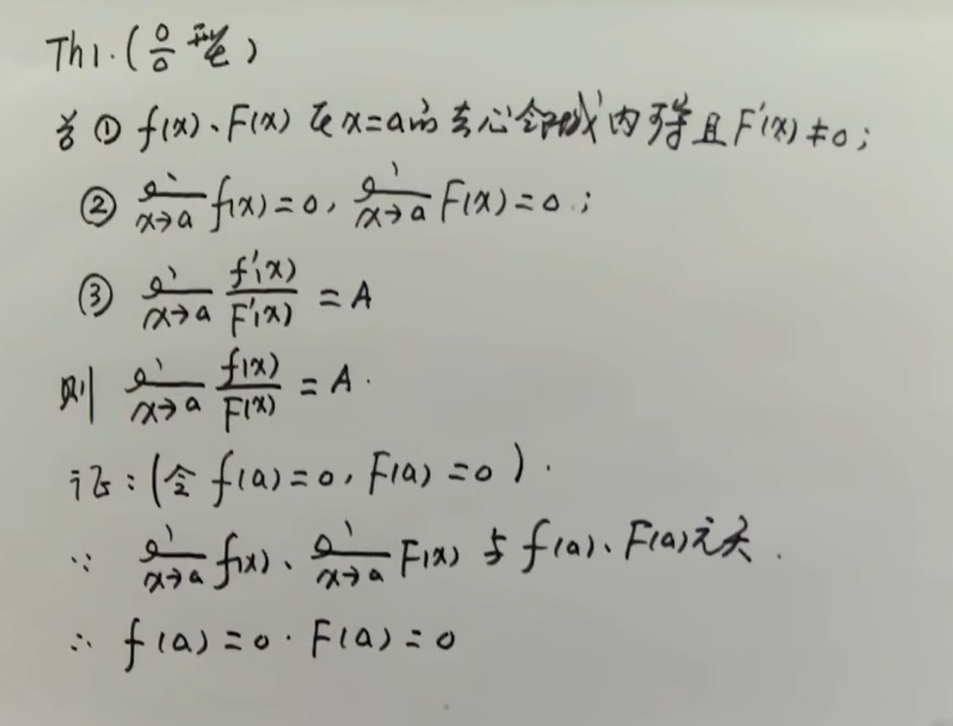 Th1.(0/0 型)
若 ① f(x)、F(x) 在 x=a的去心邻域内可导且 F'(x)≠0;
② lim x→a f(x)=0, lim x→a F(x)=0.;
③ lim x→a f'(x)/F'(x) = A
则 lim x→a f(x)/F(x) = A.
证:(令 f(a)=0, F(a)=0).
∵ lim x→a f(x)、lim x→a F(x) 与 f(a)、F(a)无关.
∴ f(a)=0. F(a)=0